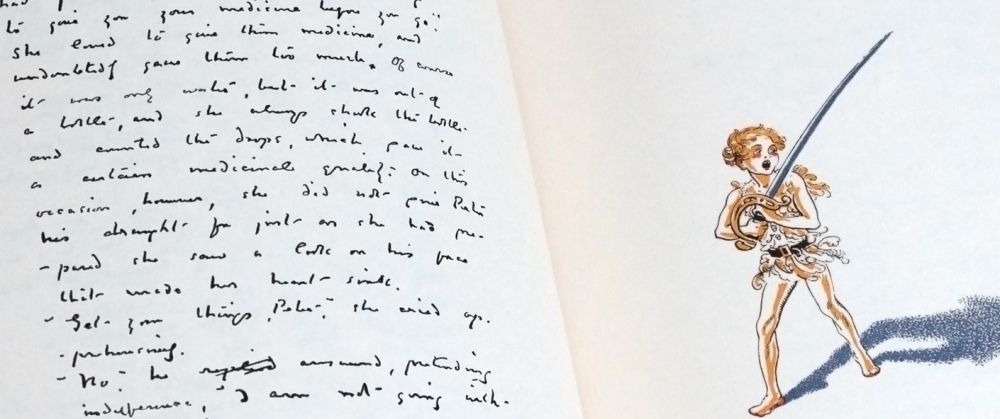 had
to give you your medicine before you go."
She loved to give them medicine, and
undoubtedly gave them too much. Of course
it was only water, but it was out of
a bottle, and she always shook the bottle
and counted the drops, which gave it
a certain medicinal quality. On this
occasion, however, she did not give Peter
his draught for just as she had pre-
-pared she saw a look on his face
that made her heart sink.
"Get your things, Peter", she cried ap-
"No", he answered, pretending
indifference, "I am not going with-